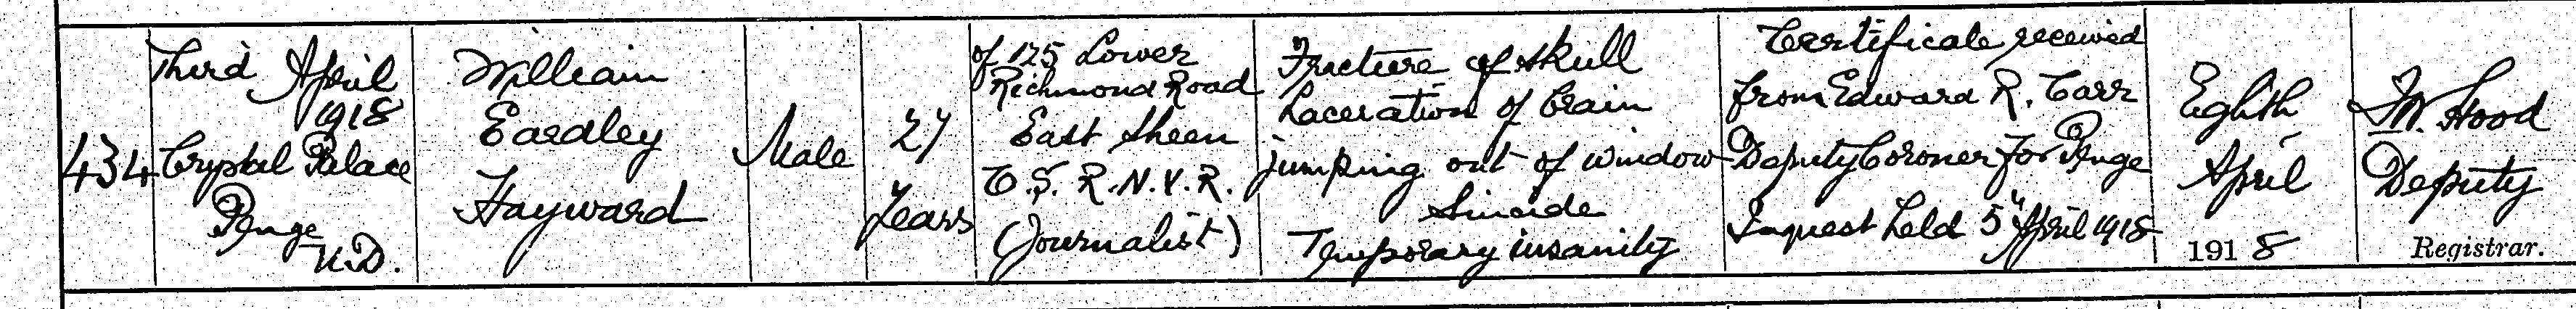 434
Third April
1918
Crystal Palace
Penge
U.D.
William
Eardley
Hayward
Male
27
Years
of 175 Lower
Richmond Road
East Sheen
O.S. R.N.V.R.
(Journalist)
Fracture of skull
Laceration of brain
jumping out of window
Suicide
Temporary insanity
Certificate received
from Edward R. Carr
Deputy Coroner for Penge
Inquest held 5th April 1918
Eighth
April
1918
Hood
Deputy
Registrar.